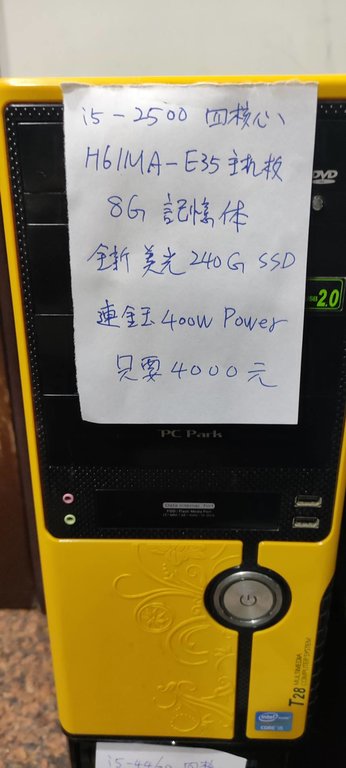 i5-2500 四核心
H61MA-E35 主机板
8G 記憶体
全新 美光 240G SSD
連鈺 400W Power
只要 4000 元
DVD
2.0
PC Park
T28 MULTIMEDIA
COMPUTER SYSTEM
intel
CORE i5
i5-4460 四核